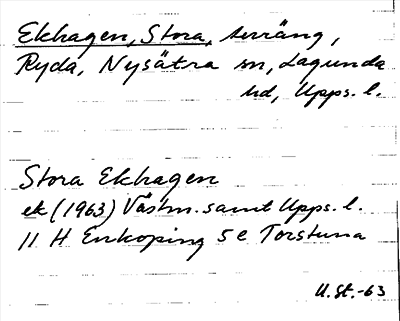 Ekhagen, Stora, terräng,
Ryda, Nysätra sn, Lagunda
hd, Upps. l.
Stora Ekhagen
ek (1963) Västm. samt Upps. l.
11 H Enköping 5 e Torstuna
U.St.-63